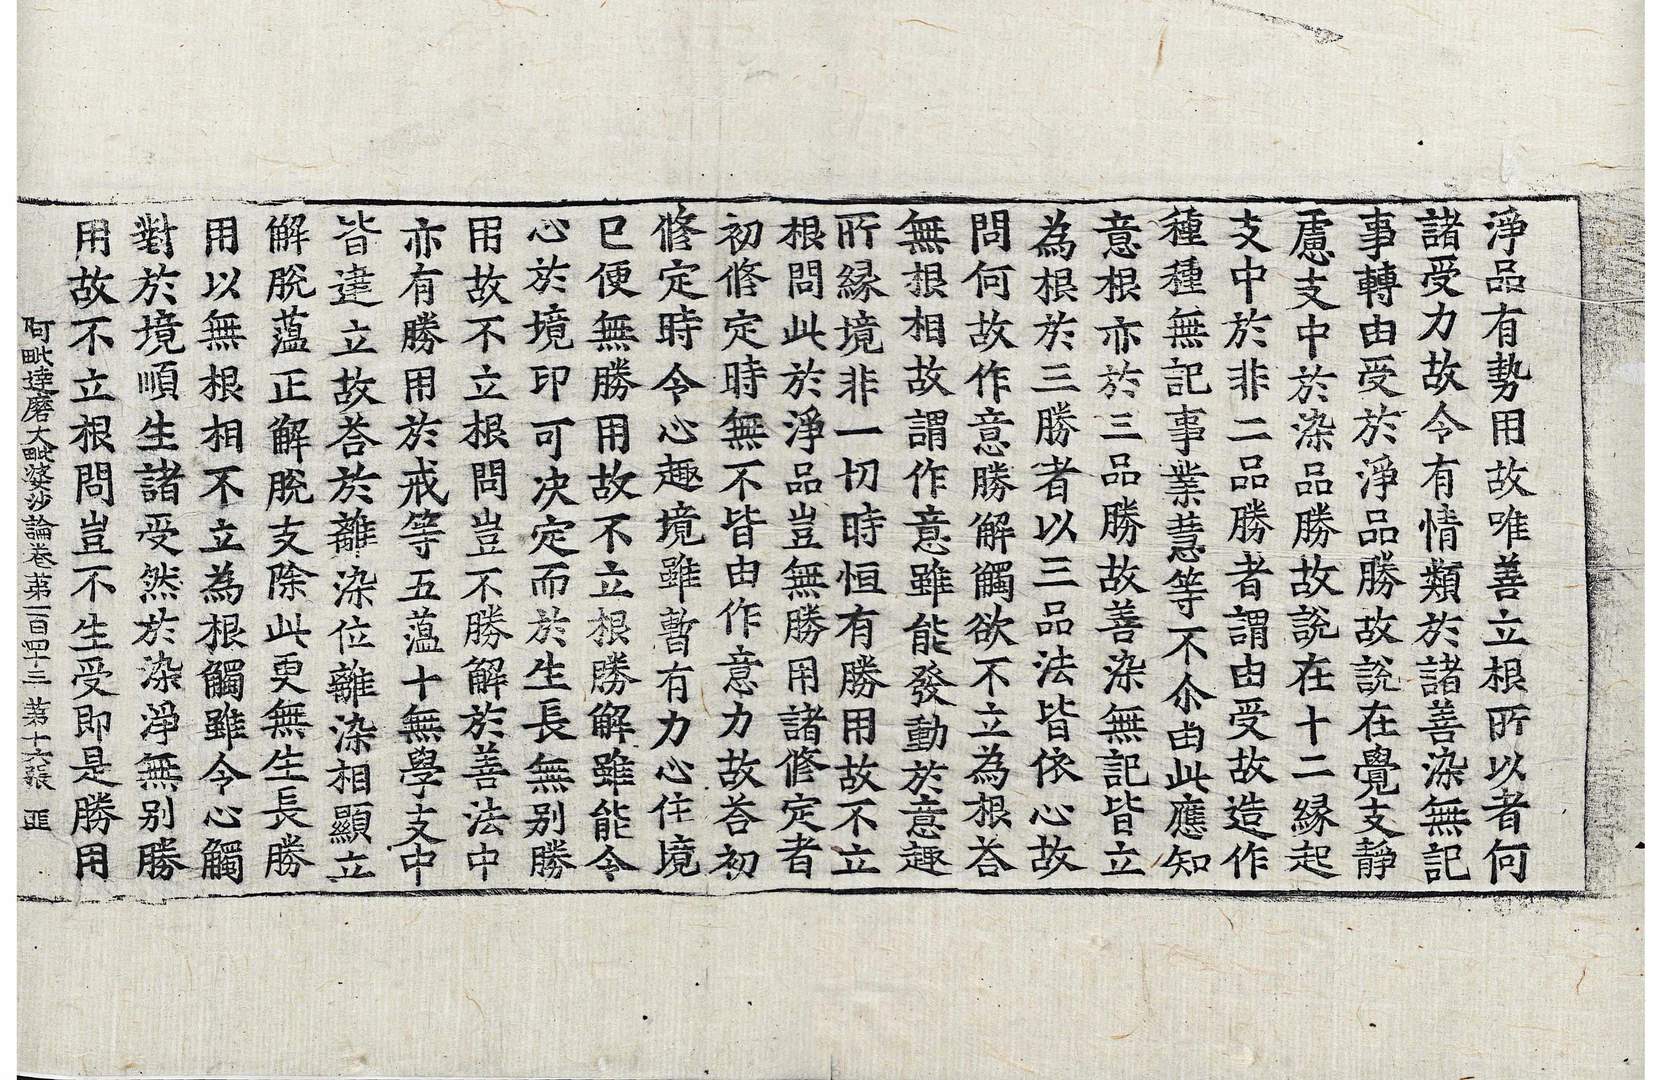 淨品有勢用故唯善立根所以者何
諸受力故令有情類於諸善染無記
事轉由受於淨品勝故說在覺支靜
慮支中於染品勝故說在十二緣起
支中於非二品勝者謂由受故造作
種種無記事業慧等不尒由此應知
意根亦於三品勝故善染無記皆立
為根於三勝者以三品法皆依心故
問何故作意勝解觸欲不立為根荅
無根相故謂作意雖能發動於意趣
所緣境非一切時恒有勝用故不立
根問此於淨品豈無勝用諸修定者
初修定時無不皆由作意力故荅初
修定時令心趣境雖暫有力心住境
已便無勝用故不立根勝解雖能令
心於境印可决定而於生長無別勝
用故不立根問豈不勝解於善法中
亦有勝用於戒等五蘊十無學支中
皆建立故荅於離染位離染相顯立
解脫蘊正解脫支除此更無生長勝
用以無根相不立為根觸雖令心觸
對於境順生諸受然於染淨無別勝
用故不立根問豈不生受即是勝用
阿毗達磨大毗婆沙論卷第一百四十三 第十六張 匪